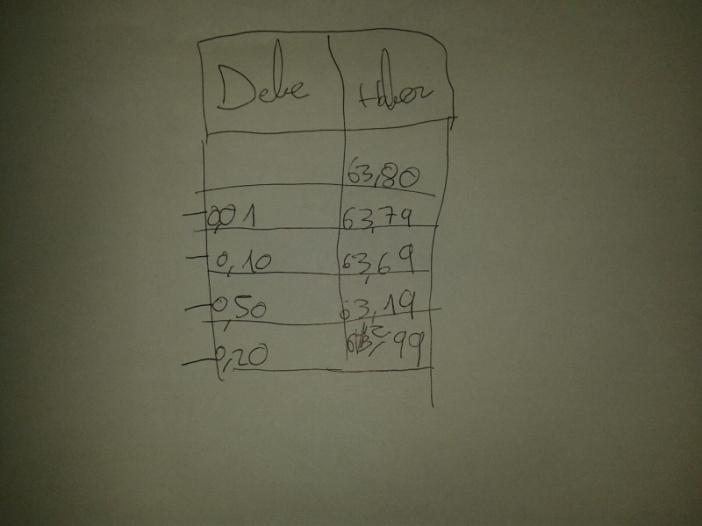 Debe Haber
63,80
-0,01 63,79
-0,10 63,69
-0,50 63,19
-0,20 62,99